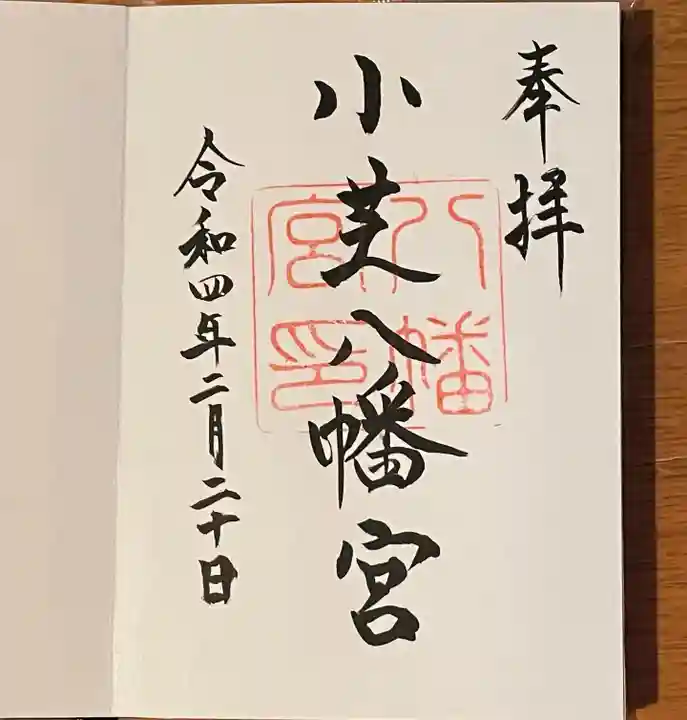 奉拝
小芝八幡宮
八幡宮印
令和四年二月二十日